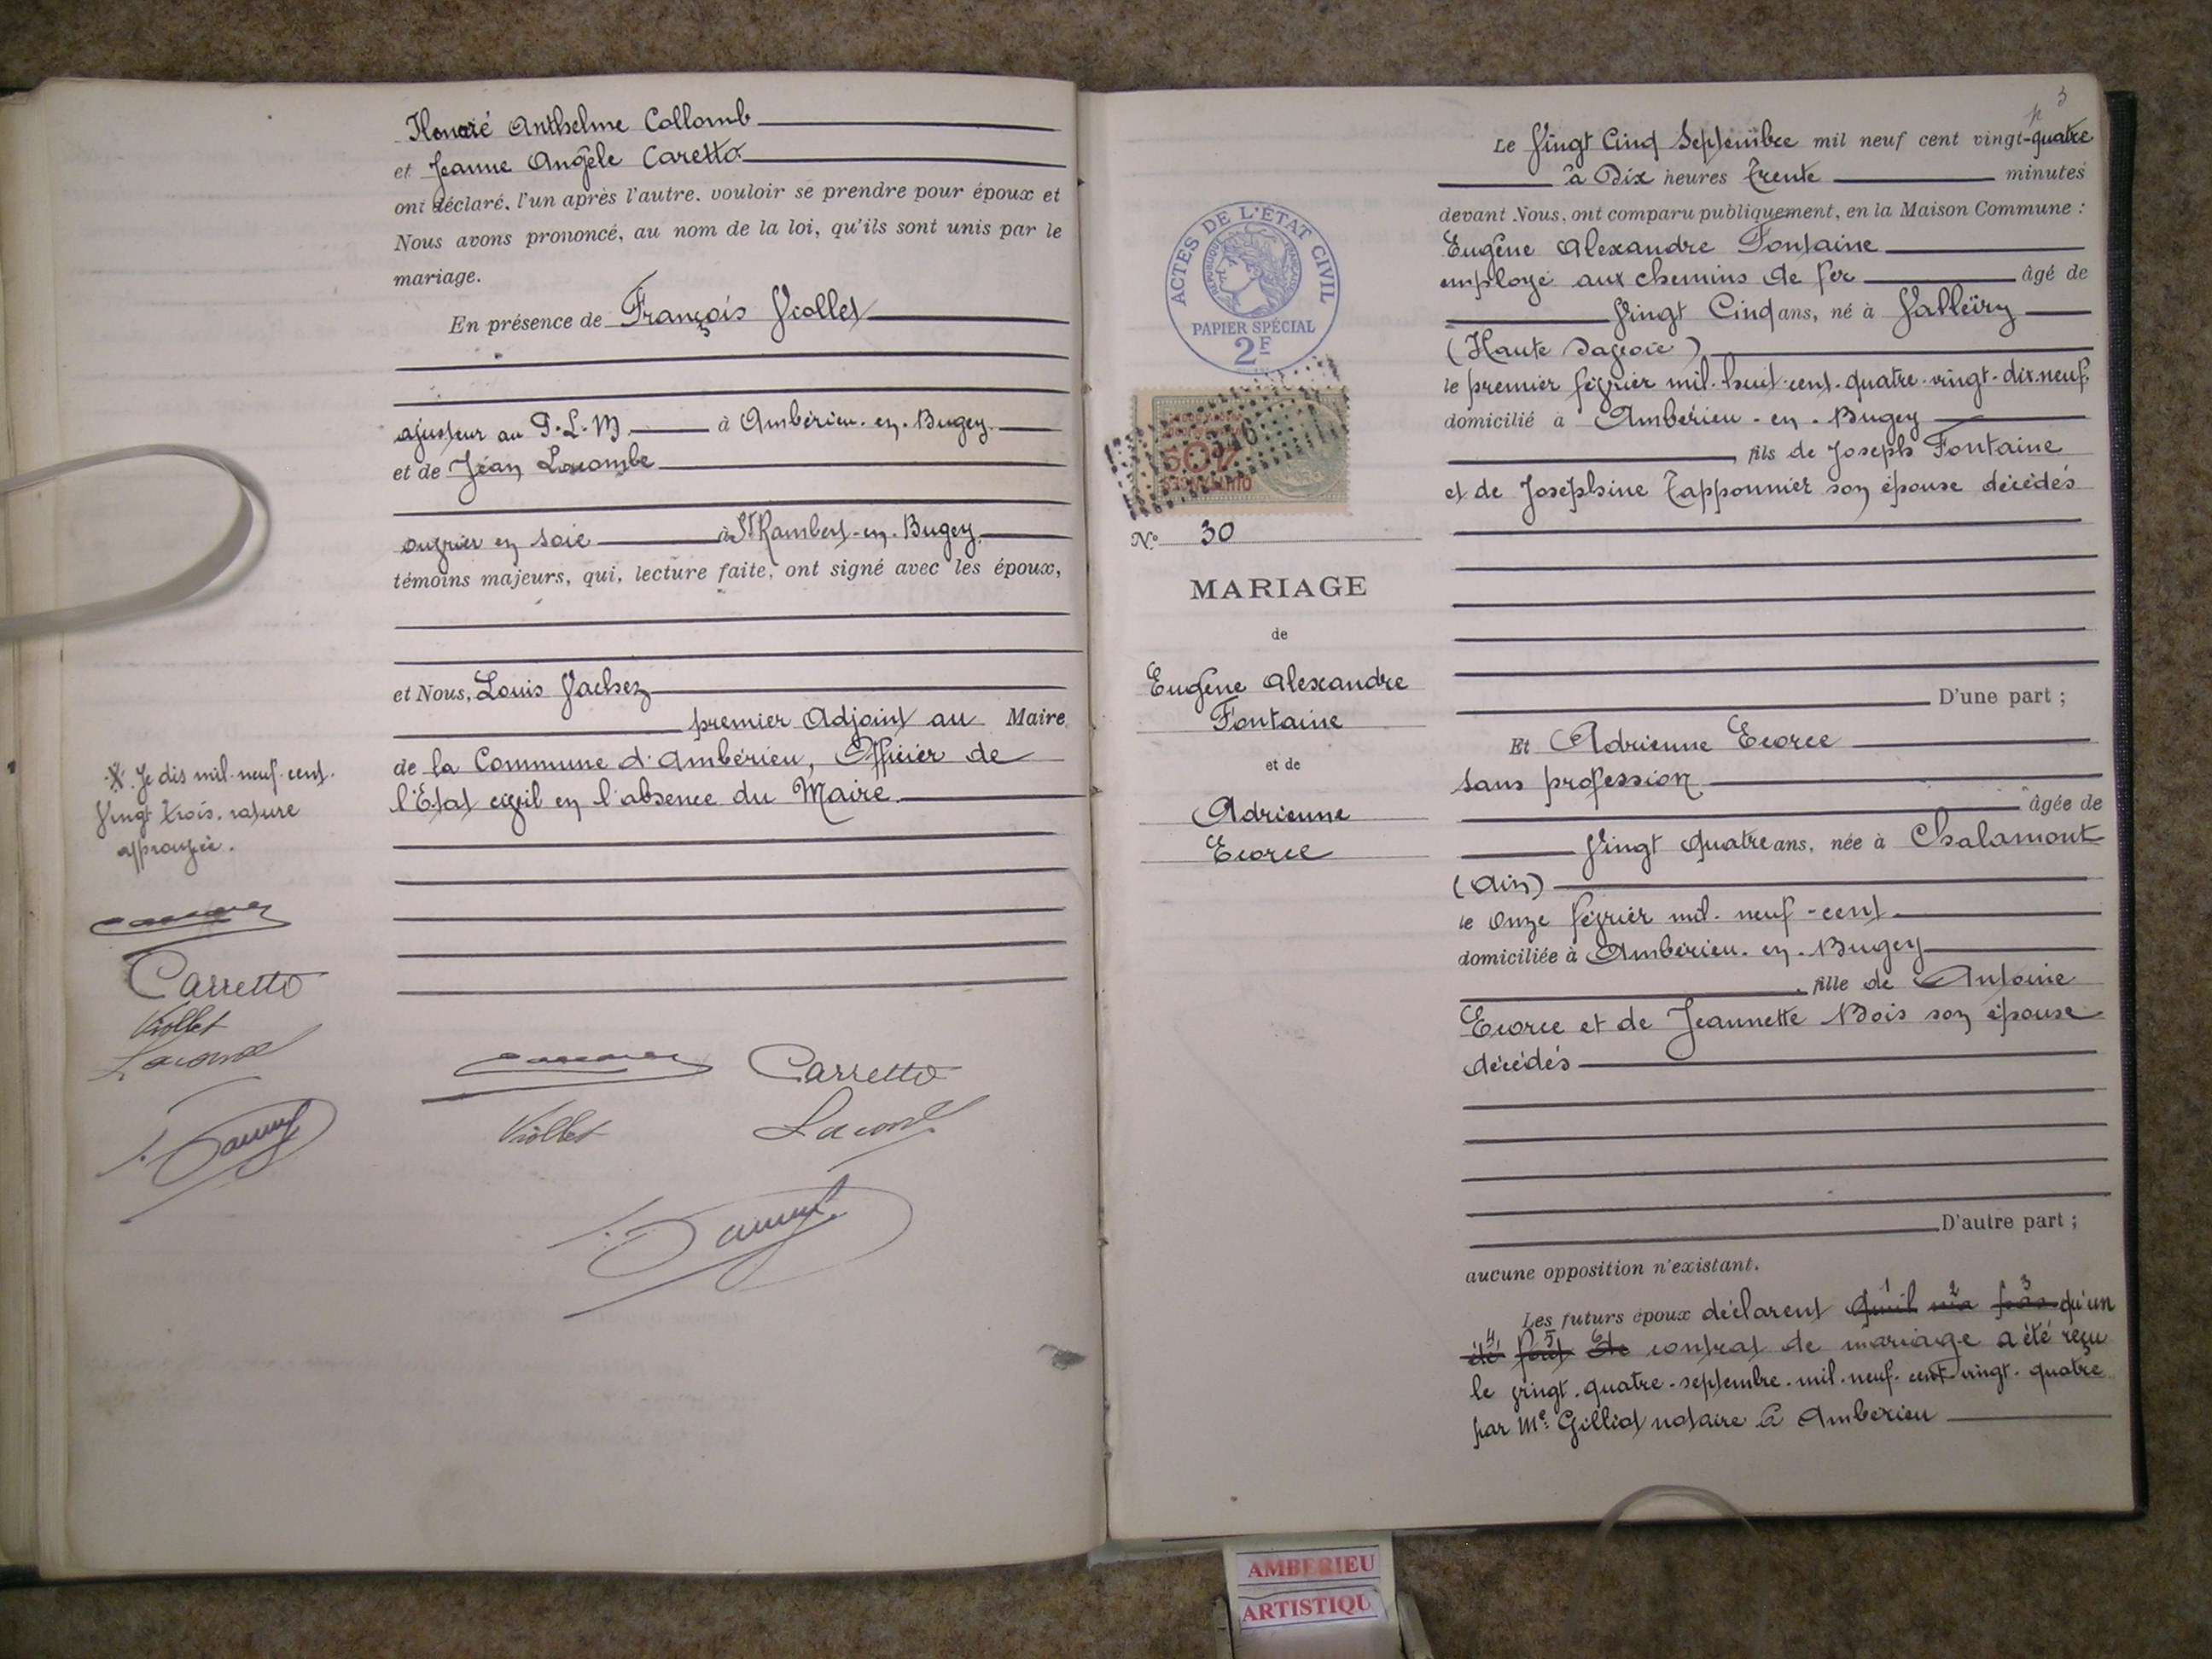 Honoré Anthelme Collomb
et Jeanne Angèle Caretto
ont déclaré, l'un après l'autre, vouloir se prendre pour époux et
Nous avons prononcé, au nom de la loi, qu'ils sont unis par le
mariage.
En présence de François Viollet
ajusteur au P.L.M. à Ambérieu-en-Bugey
et de Jean Lacombe
ouvrier en soie à St Rambert-en-Bugey
témoins majeurs, qui, lecture faite, ont signé avec les époux,
et Nous, Louis Vachez
premier Adjoint au Maire
de la Commune d'Ambérieu, Officier de
l'Etat civil en l'absence du Maire
Je dis mil-neuf-cent-
vingt trois, rature
approuvée.
Carretto
Viollet
Carretto
Viollet
3
Le Vingt Cinq Septembre mil neuf cent vingt-quatre
à Dix heures trente minutes
devant Nous, ont comparu publiquement, en la Maison Commune :
Eugène Alexandre Fontaine
employé aux chemins de fer âgé de
Vingt Cinq ans, né à Valleiry
(Haute Savoie)
le premier février mil-huit-cent-quatre-vingt-dix-neuf
domicilié à Ambérieu-en-Bugey
fils de Joseph Fontaine
et de Joséphine Tapponnier son épouse décédés
D'une part ;
Et Adrienne Ecorce
sans profession
âgée de
Vingt quatre ans, née à Chalamont
(Ain)
le onze février mil-neuf-cent
domiciliée à Ambérieu-en-Bugey
fille de Antoine
Ecorce et de Jeannette Bois son épouse
décédés
D'autre part ;
aucune opposition n'existant.
Les futurs époux déclarent qu'il n'a pas qu'un
été fait de contrat de mariage a été reçu
le vingt-quatre-septembre-mil-neuf-cent vingt-quatre
par Me Gilliot notaire à Ambérieu
ACTES DE L'ÉTAT CIVIL
RÉPUBLIQUE FRANÇAISE
PAPIER SPÉCIAL
2F
No 30
MARIAGE
de
Eugène Alexandre
Fontaine
et de
Adrienne
Ecorce
AMBERIEU
ARTISTIQU